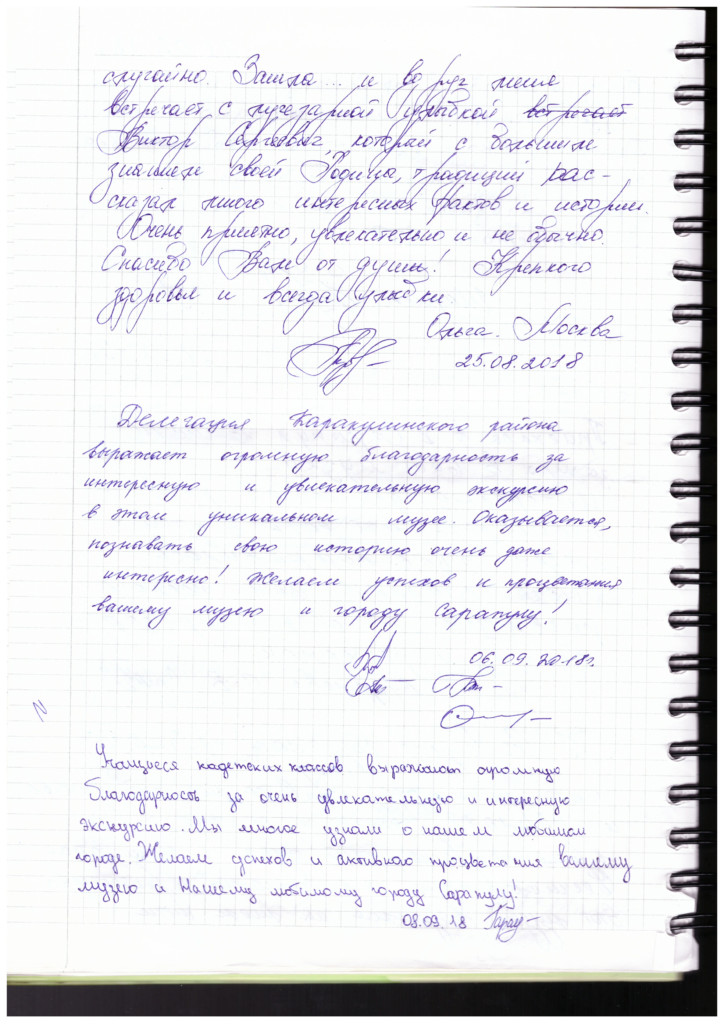 случайно. Зашла... и вдруг меня
встречает с лучезарной улыбкой встречает
Виктор Сергеевич, который с большим
знанием своей Родины, традиций рас-
сказал много интересных фактов и истории.
Очень приятно, увлекательно и не обычно.
Спасибо Вам от души! Крепкого
здоровья и всегда улыбки
Ольга. Москва
25.08.2018
Делегация Каракулинского района
выражает огромную благодарность за
интересную и увлекательную экскурсию
в этом уникальном музее. Оказывается,
познавать свою историю очень даже
интересно! Желаем успехов и процветания
вашему музею и городу Сарапулу!
06.09.2018г.
N
Учащиеся кадетских классов выражают огромную
благодарность за очень увлекательную и интересную
экскурсию. Мы многое узнали о нашем любимом
городе. Желаем успехов и активного процветания вашему
музею и Нашему любимому городу Сарапулу!
08.09.18